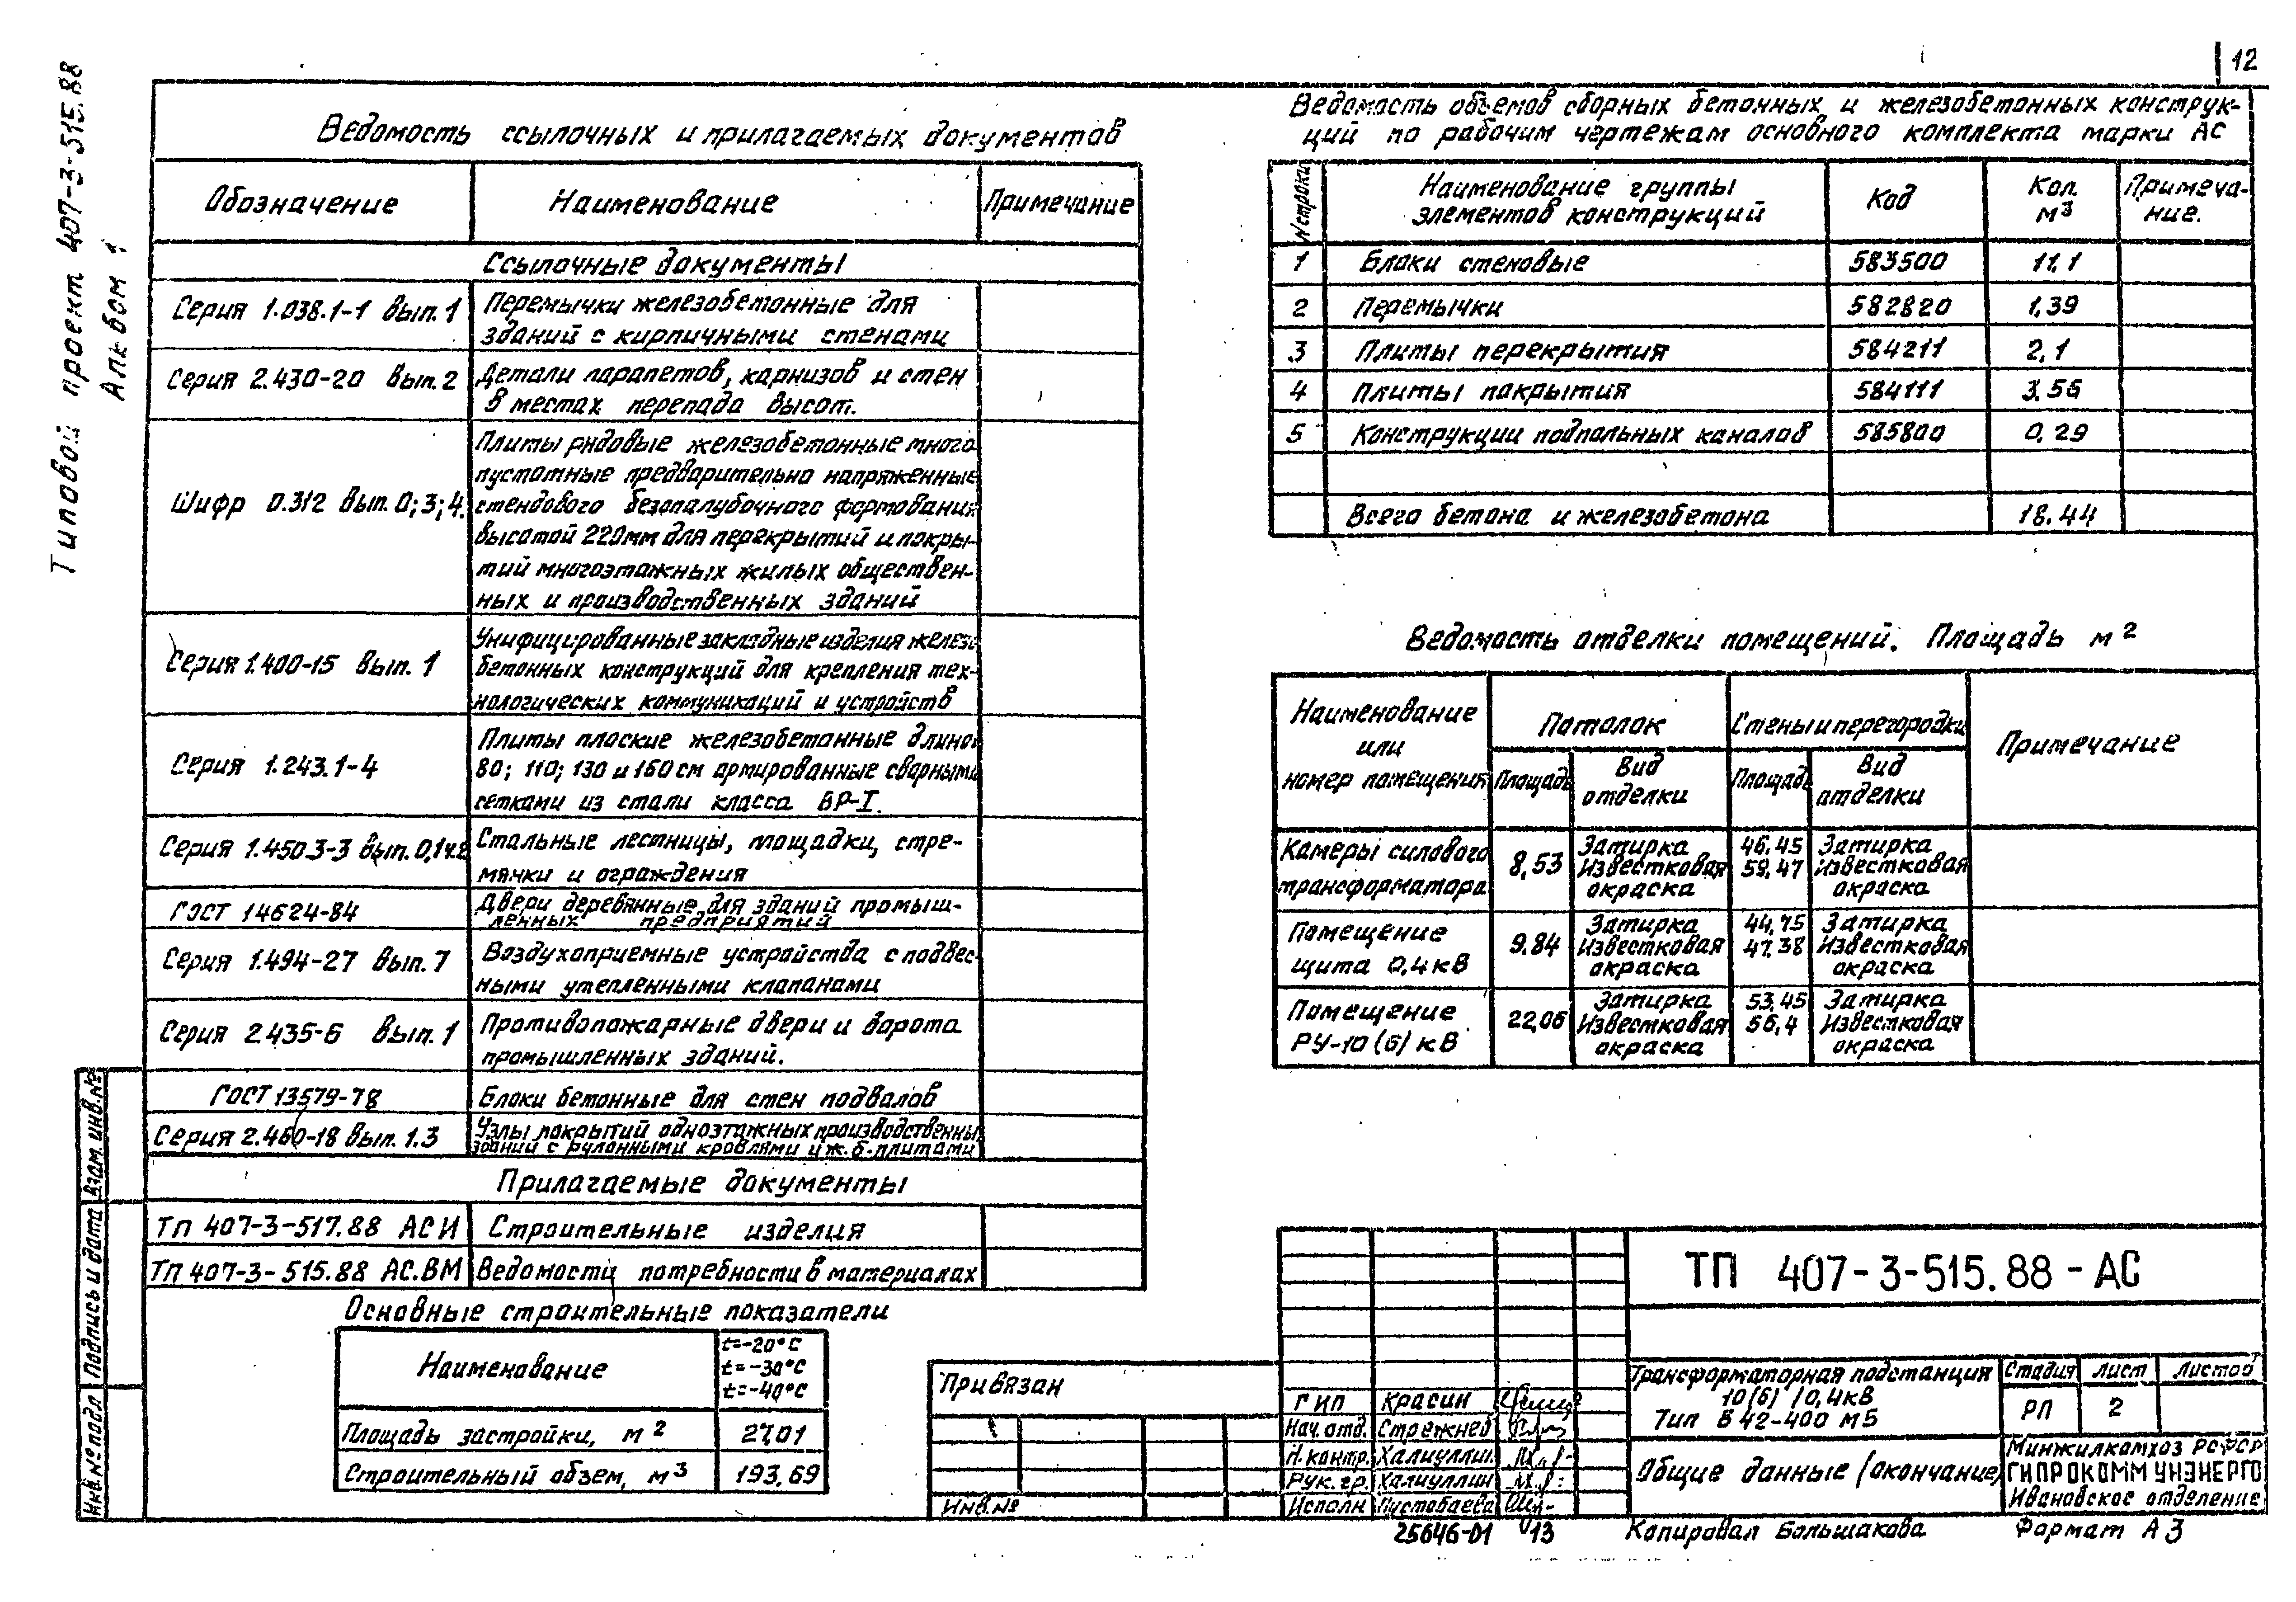 12
Типовой проект 407-3-515.88
Альбом 1
Ведомость ссылочных и прилагаемых документов
Обозначение Наименование Примечание
Ссылочные документы
Серия 1.038.1-1 вып. 1 Перемычки железобетонные для
зданий с кирпичными стенами
Серия 2.430-20 вып. 2 Детали парапетов, карнизов и стен
в местах перепада высот.
Шифр 0.312 вып. 0; 3; 4. Плиты рядовые железобетонные много
пустотные предварительно напряженные
стендового безопалубочного формования
высотой 220мм для перекрытий и покры-
тий многоэтажных жилых обществен-
ных и производственных зданий
Серия 1.400-15 вып. 1 Унифицированные закладные изделия железо
бетонных конструкций для крепления тех-
нологических коммуникаций и устройств
Серия 1.243.1-4 Плиты плоские железобетонные длиной
80; 110; 130 и 160 см армированные сварными
сетками из стали класса ВР-I.
Серия 1.450.3-3 вып. 0,1ч.2 Стальные лестницы, площадки, стре-
мянки и ограждения
ГОСТ 14624-84 Двери деревянные для зданий промыш-
ленных предприятий
Серия 1.494-27 вып. 7 Воздухоприемные устройства с подвес-
ными утепленными клапанами
Серия 2.435-6 вып. 1 Противопожарные двери и ворота
промышленных зданий.
ГОСТ 13579-78 Блоки бетонные для стен подвалов
Серия 2.460-18 вып. 1.3 Узлы покрытий одноэтажных производственных
зданий с рулонными кровлями и ж.б. плитами
Прилагаемые документы
ТП 407-3-517.88 АСИ Строительные изделия
ТП 407-3-515.88 АС.ВМ Ведомости потребности в материалах
Основные строительные показатели
Наименование t=-20°С
t=-30°С
t=-40°С
Площадь застройки, м2 27,01
Строительный объем, м3 193,69
Ведомость объемов сборных бетонных и железобетонных конструк-
ций по рабочим чертежам основного комплекта марки АС
№ строки Наименование группы
элементов конструкций Код Кол.
м3 Примеча-
ние.
1 Блоки стеновые 583500 11.1
2 Перемычки 582820 1,39
3 Плиты перекрытия 584211 2,1
4 Плиты покрытия 584111 3.56
5 Конструкции подпольных каналов 585800 0,29
Всего бетона и железобетона 18.44
Ведомость отделки помещений. Площадь м2
Наименование
или
номер помещения Потолок Стены и перегородки Примечание
Площадь Вид
отделки Площадь Вид
отделки
Камеры силового
трансформатора 8,53 Затирка
Известковая
окраска 46.45
59,47 Затирка
Известковая
окраска
Помещение
щита 0,4кВ 9.84 Затирка
Известковая
окраска 44,75
47.38 Затирка
Известковая
окраска
Помещение
РУ-10(6) кВ 22,06 Затирка
Известковая
окраска 53,45
56,4 Затирка
Известковая
окраска
Взам. инв.№
Подпись и дата
Инв.№ подл
Привязан
Инв.№
ГИП Красин
Нач. отд. Стрежнев
Н.контр. Халиуллин
Рук. гр. Халиуллин
Исполн Пустобаева
ТП 407-3-515.88-АС
Трансформаторная подстанция
10(6)/0,4кВ
Тип В 42-400 М5
Стадия Лист Листов
РП 2
Общие данные (окончание)
Минжилкомхоз РСФСР
ГИПРОКОММУНЭНЕРГО
Ивановское отделение
25646-01 13 Копировал Большакова Формат А3